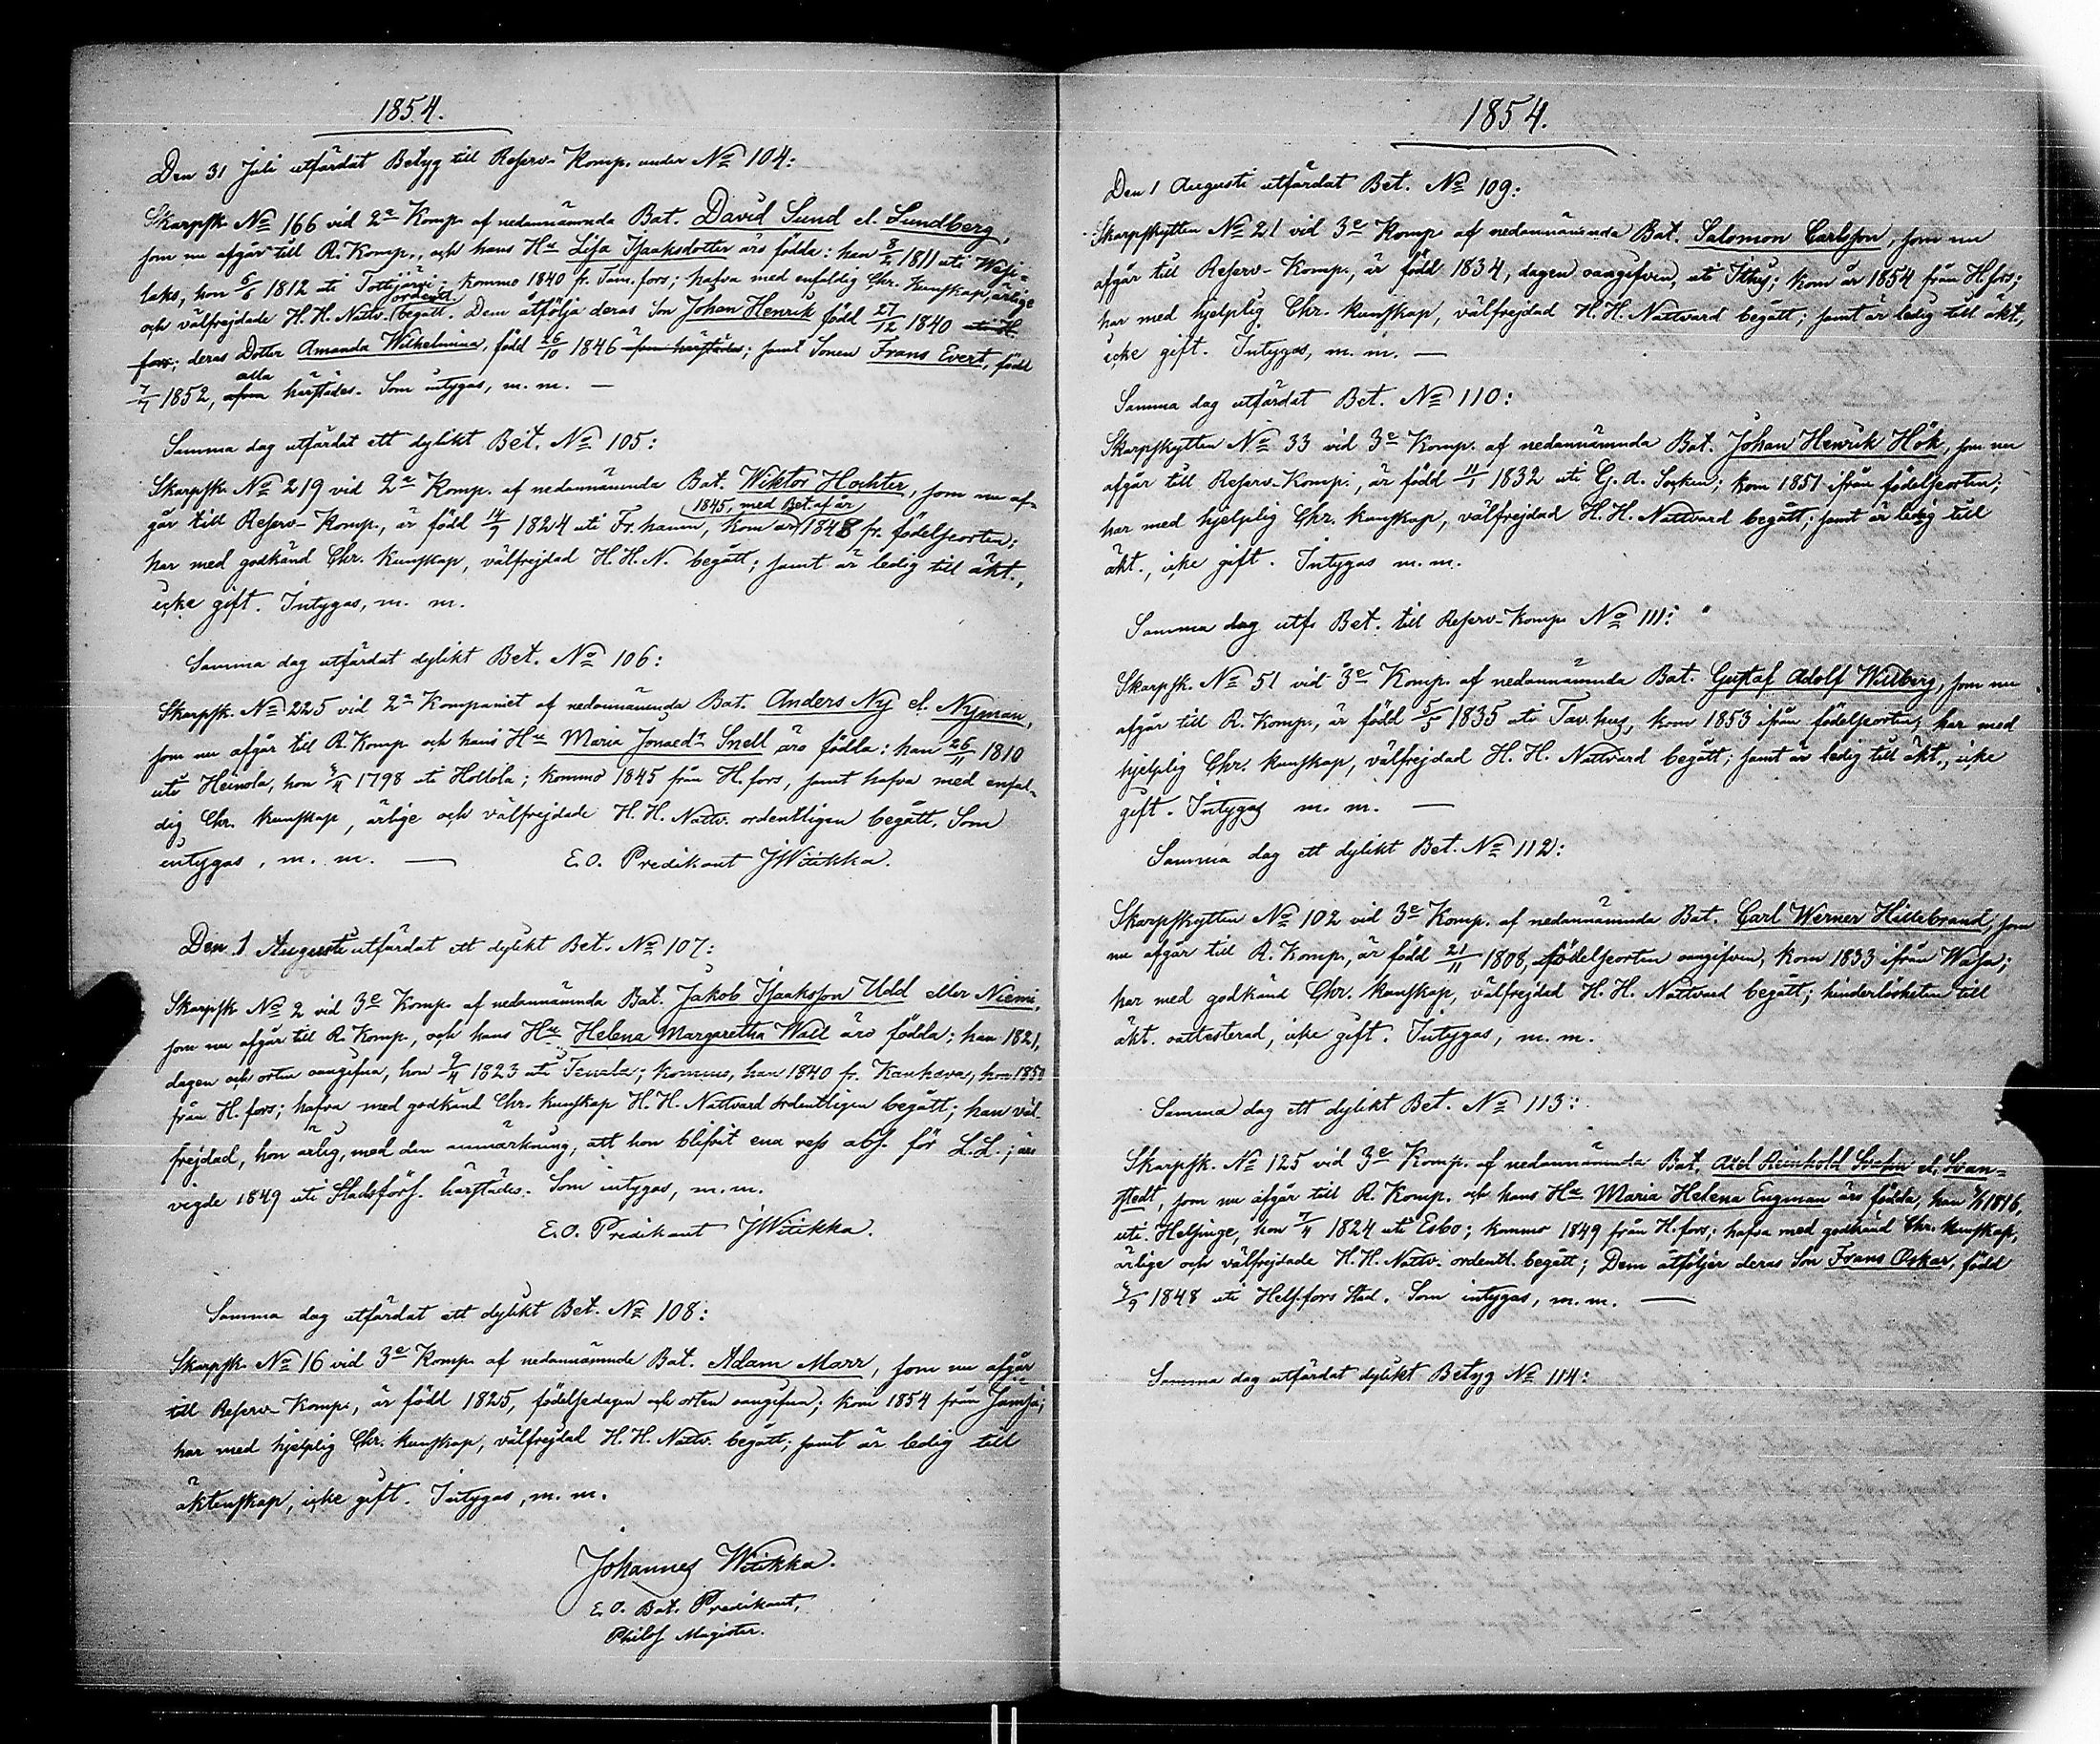 1854.
Den 31 Juli utfärdat Betyg till Reserv-Komp. under No 104:
Skarpsk. No 166 vid 2a Komp. af nedannämnda Bat. David Sund el. Sundberg,
som nu afgår till R. Komp., och hans Hu Lisa Isaksdotter äro födda: han 8/2 1811 uti Wesi-
laks, hon 6/6 1812 uti Tottijärvi; kommo 1840 fr. Tam.fors; hafva med enfaldig Chr. kunskap, ärlige
och välfrejdade H. H. Nattv. ordentl. begått. Dem åtfölja deras Son Johan Henrik född 27/12 1840 uti H.
fors; deras Dotter Amanda Wilhelmina, född 26/10 1846 härstädes; samt Sonen Frans Evert, född
7/7 1852, alla härstädes. Som intygas, m. m. —
Samma dag utfärdat ett dylikt Bet. No 105:
Skarpsk. No 219 vid 2a Komp. af nedannämnda Bat. Wiktor Hochter, som nu af-
går till Reserv-Komp., är född 14/7 1824 uti Fr. hamn, kom 1845, med Bet. af år 1848 fr. födelseorten;
har med godkänd Chr. kunskap, välfrejdad H. H. N. begått; samt är ledig till äkt.,
icke gift. Intygas, m. m.
Samma dag utfärdat dylikt Bet. No 106:
Skarpsk. No 225 vid 2a Kompaniet af nedannämnda Bat. Anders Ny el. Nyman,
som nu afgår till R. Komp. och hans Hu Maria Jonaedr Snell äro födda: han 26/11 1810
uti Heinola, hon 1798 uti Hollola; kommo 1845 från H.fors, samt hafva med enfal-
dig Chr. kunskap, ärlige och välfrejdade H. H. Nattv. ordentligen begått. Som
intygas, m. m. — E. O. Predikant JWiikka.
Den 1 Augusti utfärdat ett dylikt Bet. No 107:
Skarpsk. No 2 vid 3e Komp. af nedannämnda Bat. Jakob Isaksson Udd eller Niemi,
som nu afgår till R. Komp., och hans Hu Helena Margaretha Wall äro födda; han 1821,
dagen och orten oangifna, hon 9/4 1823 uti Tenala; kommo, han 1840 fr. Kauhava, hon 1850
från H.fors; hafva med godkänd Chr. kunskap H. H. Nattvard ordentligen begått; han väl-
frejdad, hon ärlig, med den anmärkning, att hon blifvit ena ress abs. för L. L.; äro
vigde 1849 uti Stadsförs. härstädes. Som intygas, m. m.
E. O. Predikant JWiikka.
Samma dag utfärdat ett dylikt Bet. No 108:
Skarpsk. No 16 vid 3e Komp. af nedannämnde Bat. Adam Marr, som nu afgår
till Reserv-Komp., är född 1825, födelsedagen och orten oangifna; kom 1854 från Jamsä;
har med hjelplig Chr. kunskap, välfrejdad H. H. Nattv. begått; samt är ledig till
äktenskap, icke gift. Intygas, m. m.
Johannes Wiikka.
E. O. Bat. Predikant,
Philos Magister.
1854.
Den 1 Augusti utfärdat Bet. No 109:
Skarpskytten No 21 vid 3e Komp. af nedannämnda Bat. Salomon Carlsson, som nu
afgår till Reserv-Komp., är född 1834, dagen oangifven, uti Ithis; kom år 1854 från H.fors;
har med hjelplig Chr. kunskap, välfrejdad H. H. Nattvard begått; samt är ledig till äkt.,
icke gift. Intygas, m. m. —
Samma dag utfärdat Bet. No 110:
Skarpskytten No 33 vid 3e Komp. af nedannämnda Bat. Johan Henrik Hök, som nu
afgår till Reserv-Komp., är född 11/1 1832 uti G. K. Socken; kom 1851 ifrån födelseorten;
har med hjelplig Chr. kunskap, välfrejdad H. H. Nattvard begått; samt är ledig till
äkt., icke gift. Intygas m. m.
Samma dag utf. Bet. till Reserv-Komp. No 111:
Skarpsk. No 51 vid 3e Komp. af nedannämnda Bat. Gustaf Adolf Willberg, som nu
afgår till R. Komp., är född 5/5 1835 uti Tav.hus, kom 1853 ifrån födelseorten, har med
hjelplig Chr. kunskap, välfrejdad H. H. Nattvard begått; samt är ledig till äkt., icke
gift. Intygas m. m. —
Samma dag ett dylikt Bet. No 112:
Skarpskytten No 102 vid 3e Komp. af nedannämnda Bat. Carl Werner Hillebrand, som
nu afgår till R. Komp., är född 21/11 1808, födelseorten oangifven, kom 1833 ifrån Wasa;
har med godkänd Chr. kunskap, välfrejdad H. H. Nattvard begått; hinderlösheten till
äkt. oattesterad, icke gift. Intygas, m. m.
Samma dag ett dylikt Bet. No 113:
Skarpsk. No 125 vid 3e Komp. af nedannämnda Bat. Axel Reinhold Svahn el. Svan-
stedt, som nu afgår till R. Komp. och hans Hu Maria Helena Engman äro födda, han 1816,
uti Helsinge, hon 7/4 1824 uti Esbo; kommo 1849 från H.fors; hafva med godkänd Chr. kunskap,
ärlige och välfrejdade H. H. Nattv. ordentl. begått; Dem åtföljer deras Son Frans Oskar, född
1848 uti Helsfors Stad. Som intygas, m. m. —
Samma dag utfärdat dylikt Betyg No 114: